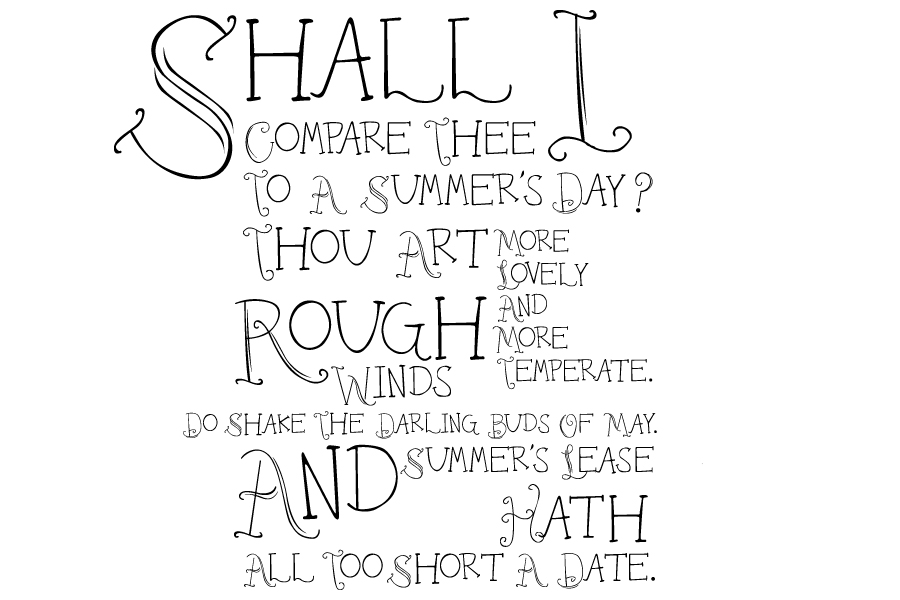 SHALL I
COMPARE THEE
TO A SUMMER'S DAY?
THOU ART
MORE
LOVELY
AND
MORE
TEMPERATE.
ROUGH
WINDS
DO SHAKE THE DARLING BUDS OF MAY.
AND
SUMMER'S LEASE
HATH
ALL TOO SHORT A DATE.